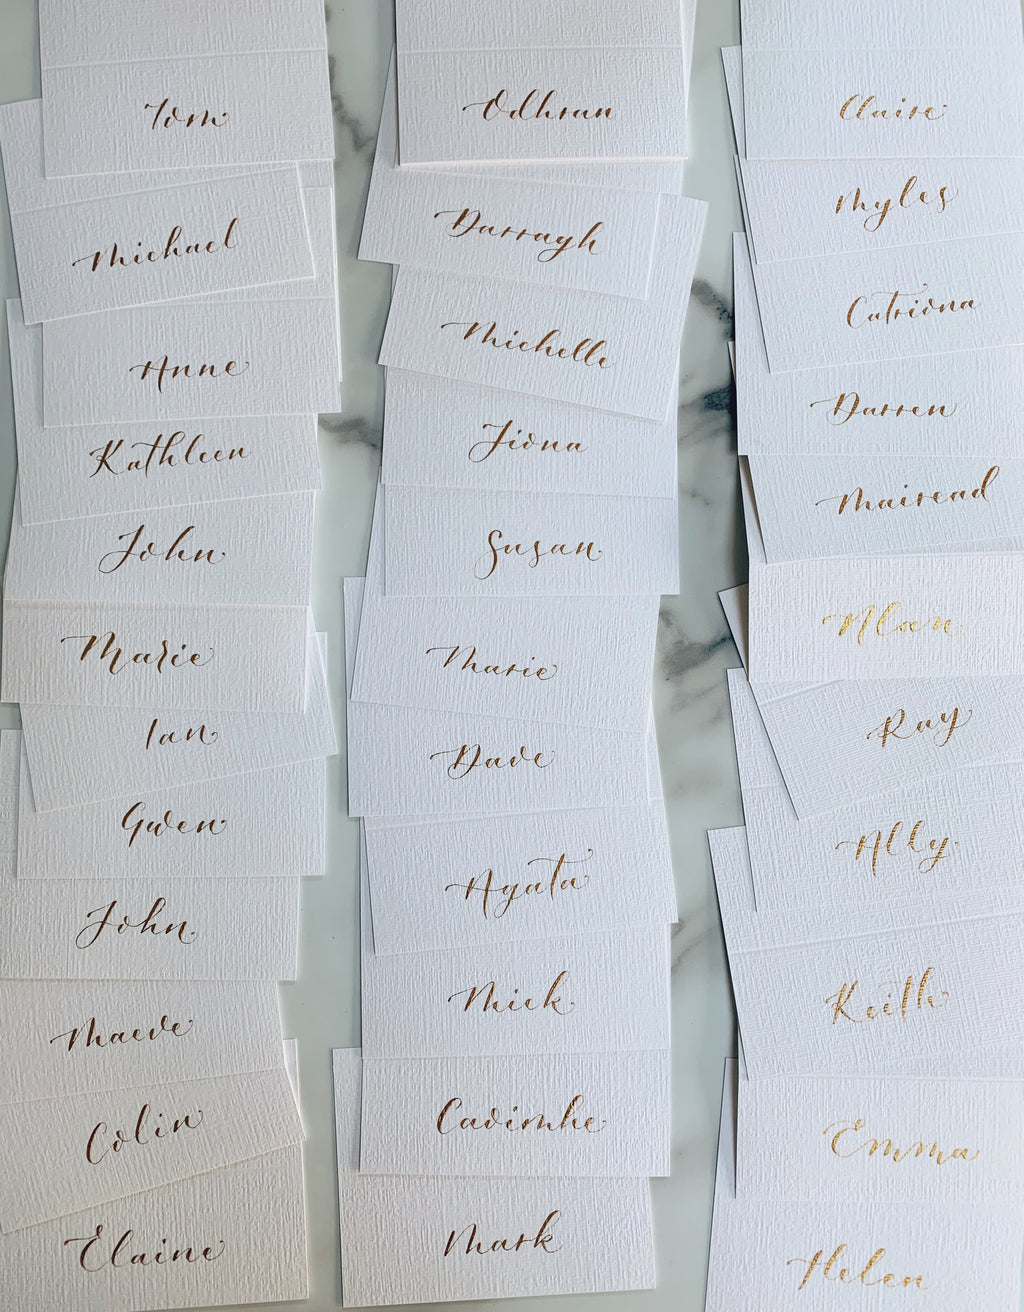 Tom
Michael
Anne
Kathleen
John
Marie
Ian
Gwen
John
Maeve
Colin
Elaine
Odhran
Darragh
Michelle
Fiona
Susan
Marie
Dave
Agata
Mick
Caoimhe
Mark
Claire
Myles
Catriona
Darren
Mairead
Alan
Ray
Ally
Keith
Emma
Helen